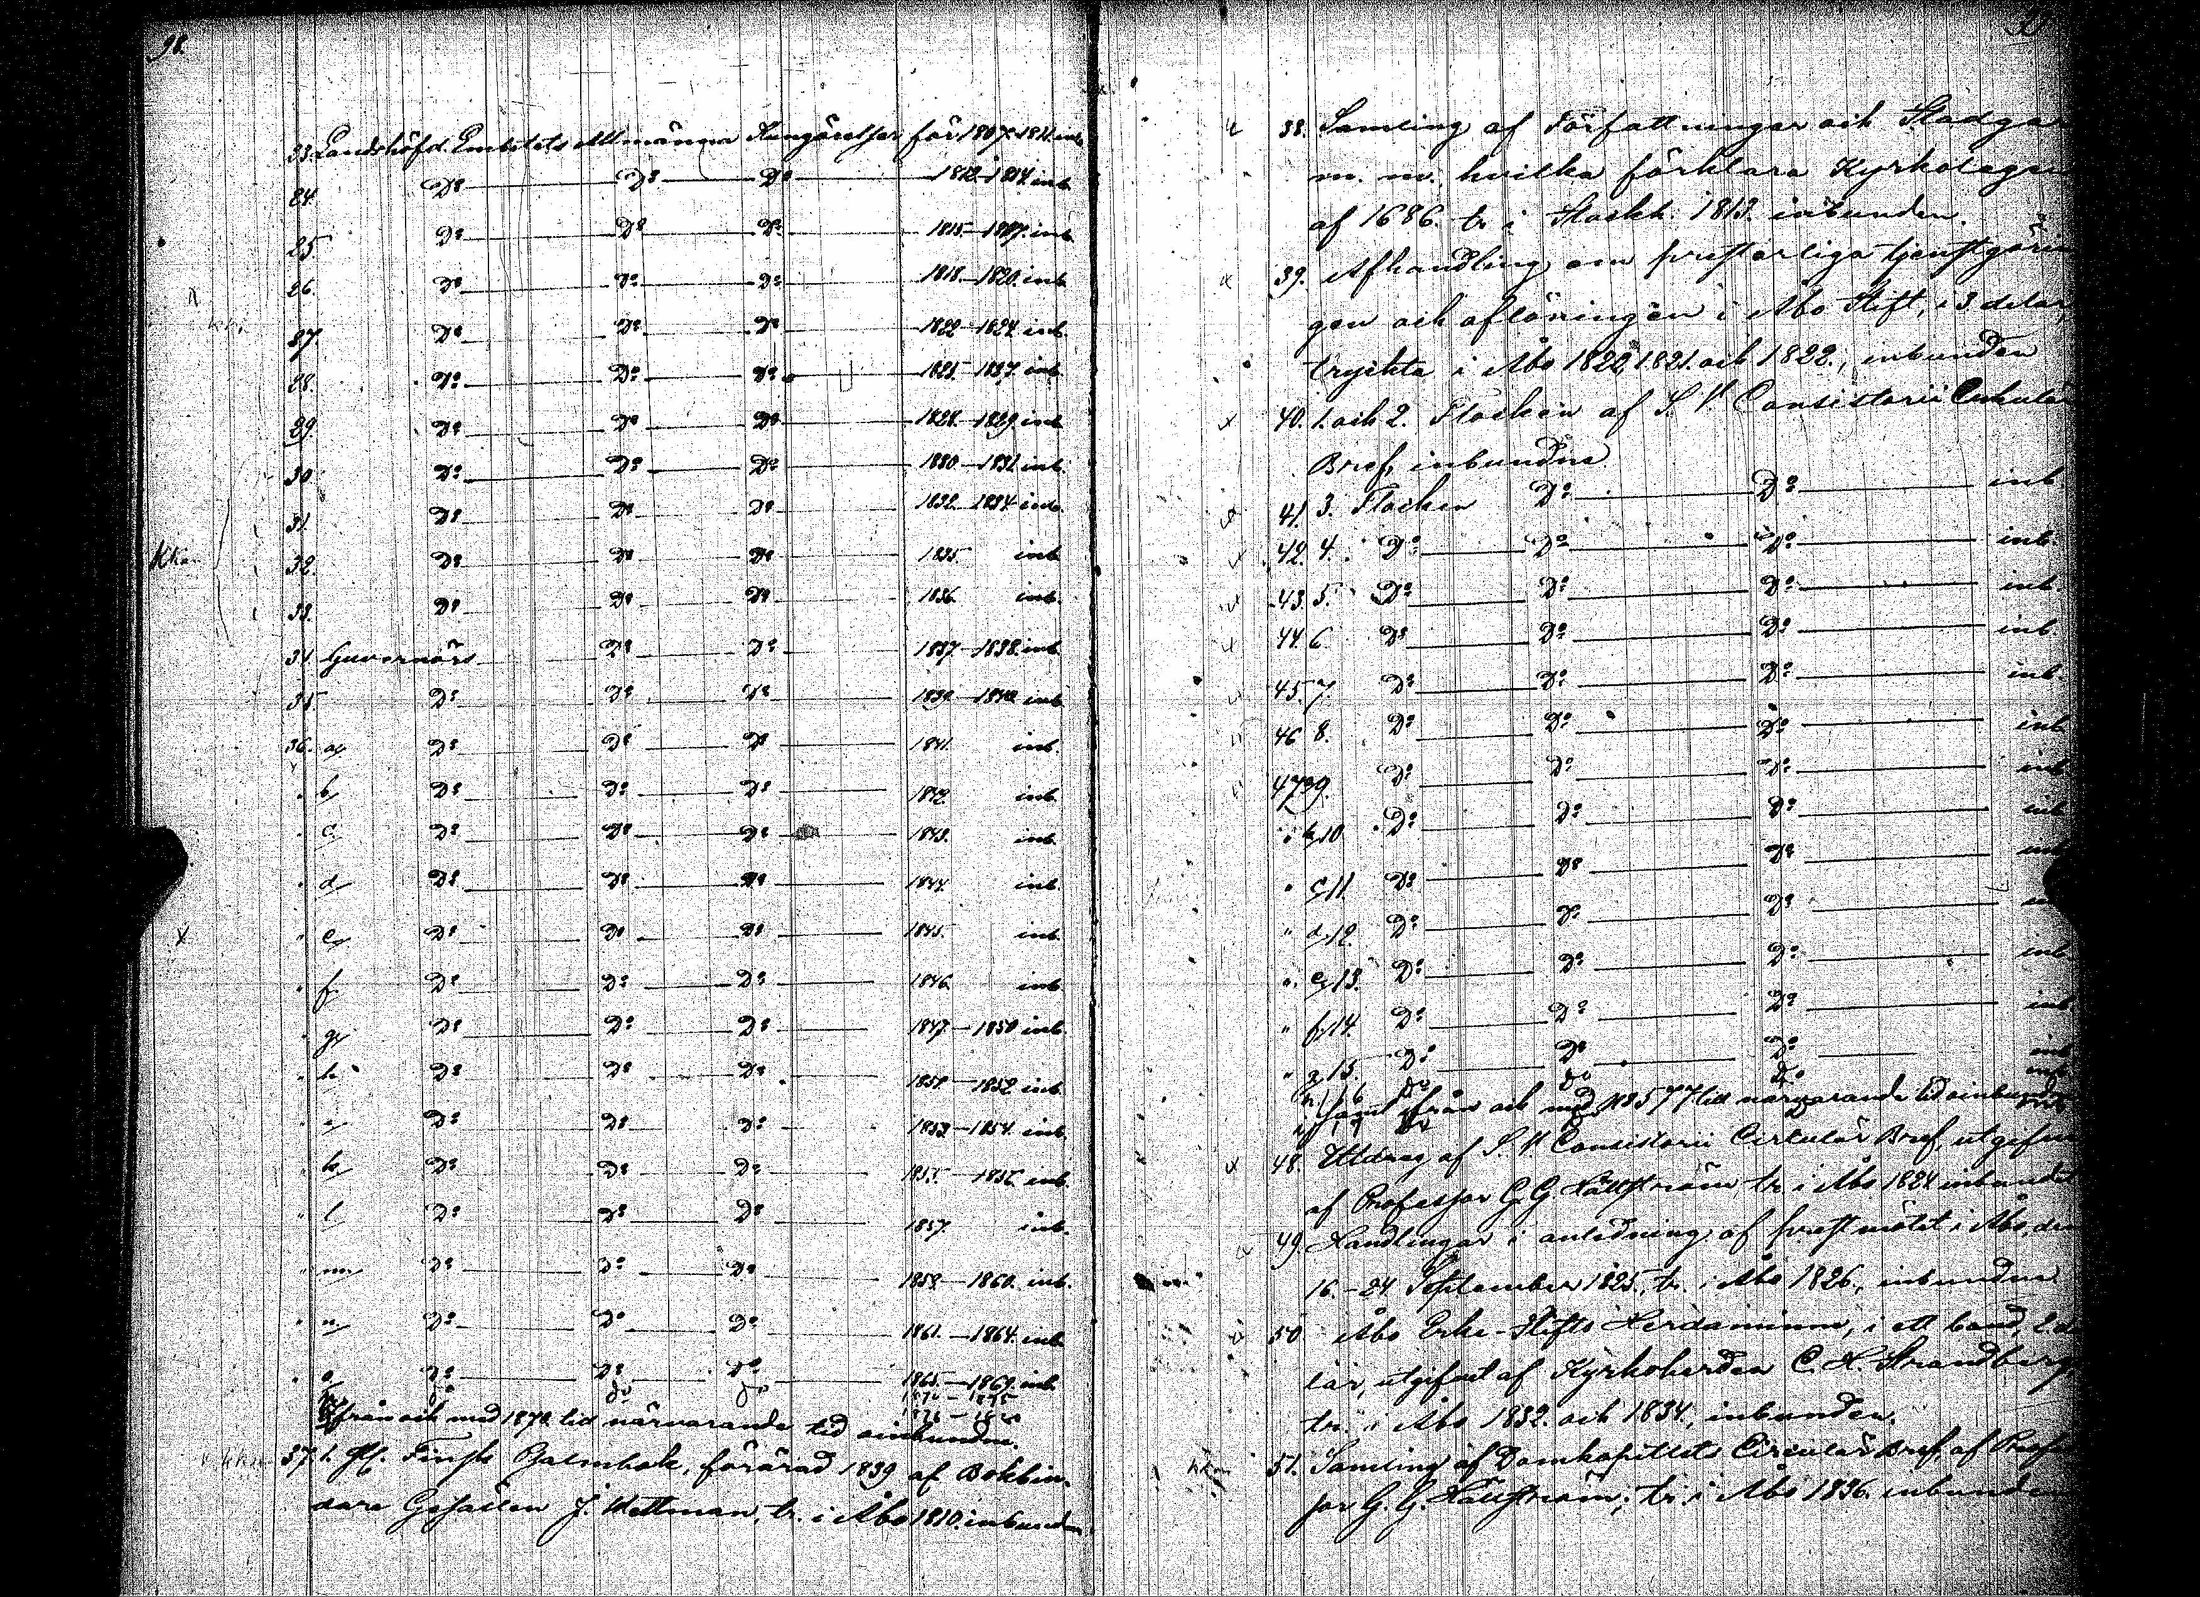 98.
23. Landshöfd. Embetets Allmänna Kungörelser för 1807–1811. inb.
24. Do Do Do 1812–1814. inb.
25 Do Do Do 1815–1817. inb.
26. Do Do Do 1818–1820. inb.
27 Do Do Do 1822–1824. inb.
28. Do Do Do 1825–1827. inb.
29. Do Do Do 1828–1829. inb.
30. Do Do Do 1830–1831. inb.
31 Do Do Do 1832–1834. inb.
32. Do Do Do 1835. inb.
33. Do Do Do 1836. inb.
34 Guvernörs Do Do 1837–1838. inb.
35 Do Do Do 1839–1840. inb.
36. a, Do Do Do 1841. inb.
" b, Do Do Do 1842. inb.
" c, Do Do Do 1843. inb.
" d, Do Do Do 1844. inb.
" e, Do Do Do 1845. inb.
" f, Do Do Do 1846. inb.
" g, Do Do Do 1847–1850 inb.
" h, Do Do Do 1851–1852 inb.
" i, Do Do Do 1853–1854. inb.
" k, Do Do Do 1855–1856 inb.
" l, Do Do Do 1857. inb.
" m, Do Do Do 1858–1860. inb.
" n, Do Do Do 1861.–1864. inb.
" o, Do Do Do 1865–1869. inb
do do do 1870–1875
från och med 1870 till närvarande tid oinbundne.
37. 1. Gl. Finsk Psalmbok, förärad 1839 af Bokbin-
dare Gesällen J. Wettman, tr. i Åbo 1810. inbunden
38. Samling af Författningar och Stadgar
m. m. hvilka förklara Kyrkolagen
af 1686. tr. i Stockh. 1813. inbunden.
39. Afhandling om presterliga tjenstgörin-
gen och aflöningen i Åbo Stift, i 3 delar,
tryckta i Åbo 1820, 1821. och 1822., inbunden
40. 1. och 2. Flocken af S. V. Consistorii Cirkulär
Bref, inbundne.
41. 3. Flocken Do Do inb
42. 4. Do Do Do inb.
43. 5. Do Do Do inb.
44. 6 Do Do Do inb.
45. 7. Do Do Do inb
46 8. Do Do Do inb
47 a, 9. Do Do Do inb
" b, 10. Do Do Do inb
" c, 11. Do Do Do inb
" d, 12. Do Do Do inb
" e, 13. Do Do Do inb
" f, 14. Do Do Do inb
" g, 15. Do Do Do inb
h, 16 Do Do Do inb
samt ifrån och med No 577 till närvarande tid oinbundne
48. Utdrag af S. V. Consistorii Cirkulär Bref, utgifne
af Professor G. G. Hällström, tr. i Åbo 1824. inbundet
49. Handlingar i anledning af prestmötet i Åbo, den
16.–24 September 1825, tr. i Åbo 1826., inbunden
50 Åbo Erke-Stifts Herdaminne, i ett band, 2. de-
lar, utgifvet af Kyrkoherden C. H. Strandberg
tr. i Åbo 1832. och 1834., inbunden.
51. Samling af Domkapitlets Circulär Bref, af Profes-
sor G. G. Hällström, tr. i Åbo 1836. inbunden